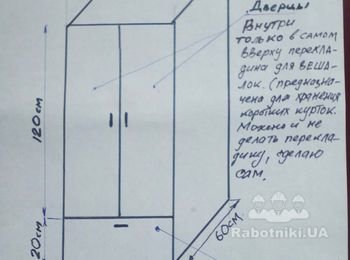 Дверцы
Внутри
только в самом
вверху перекла
дина для веша-
лок. (предназна-
чена для хранения
коротких курток.
Можно и не
делать перекла
дину, сделаю
сам.
120см
20см
60см
Rabotniki.UA